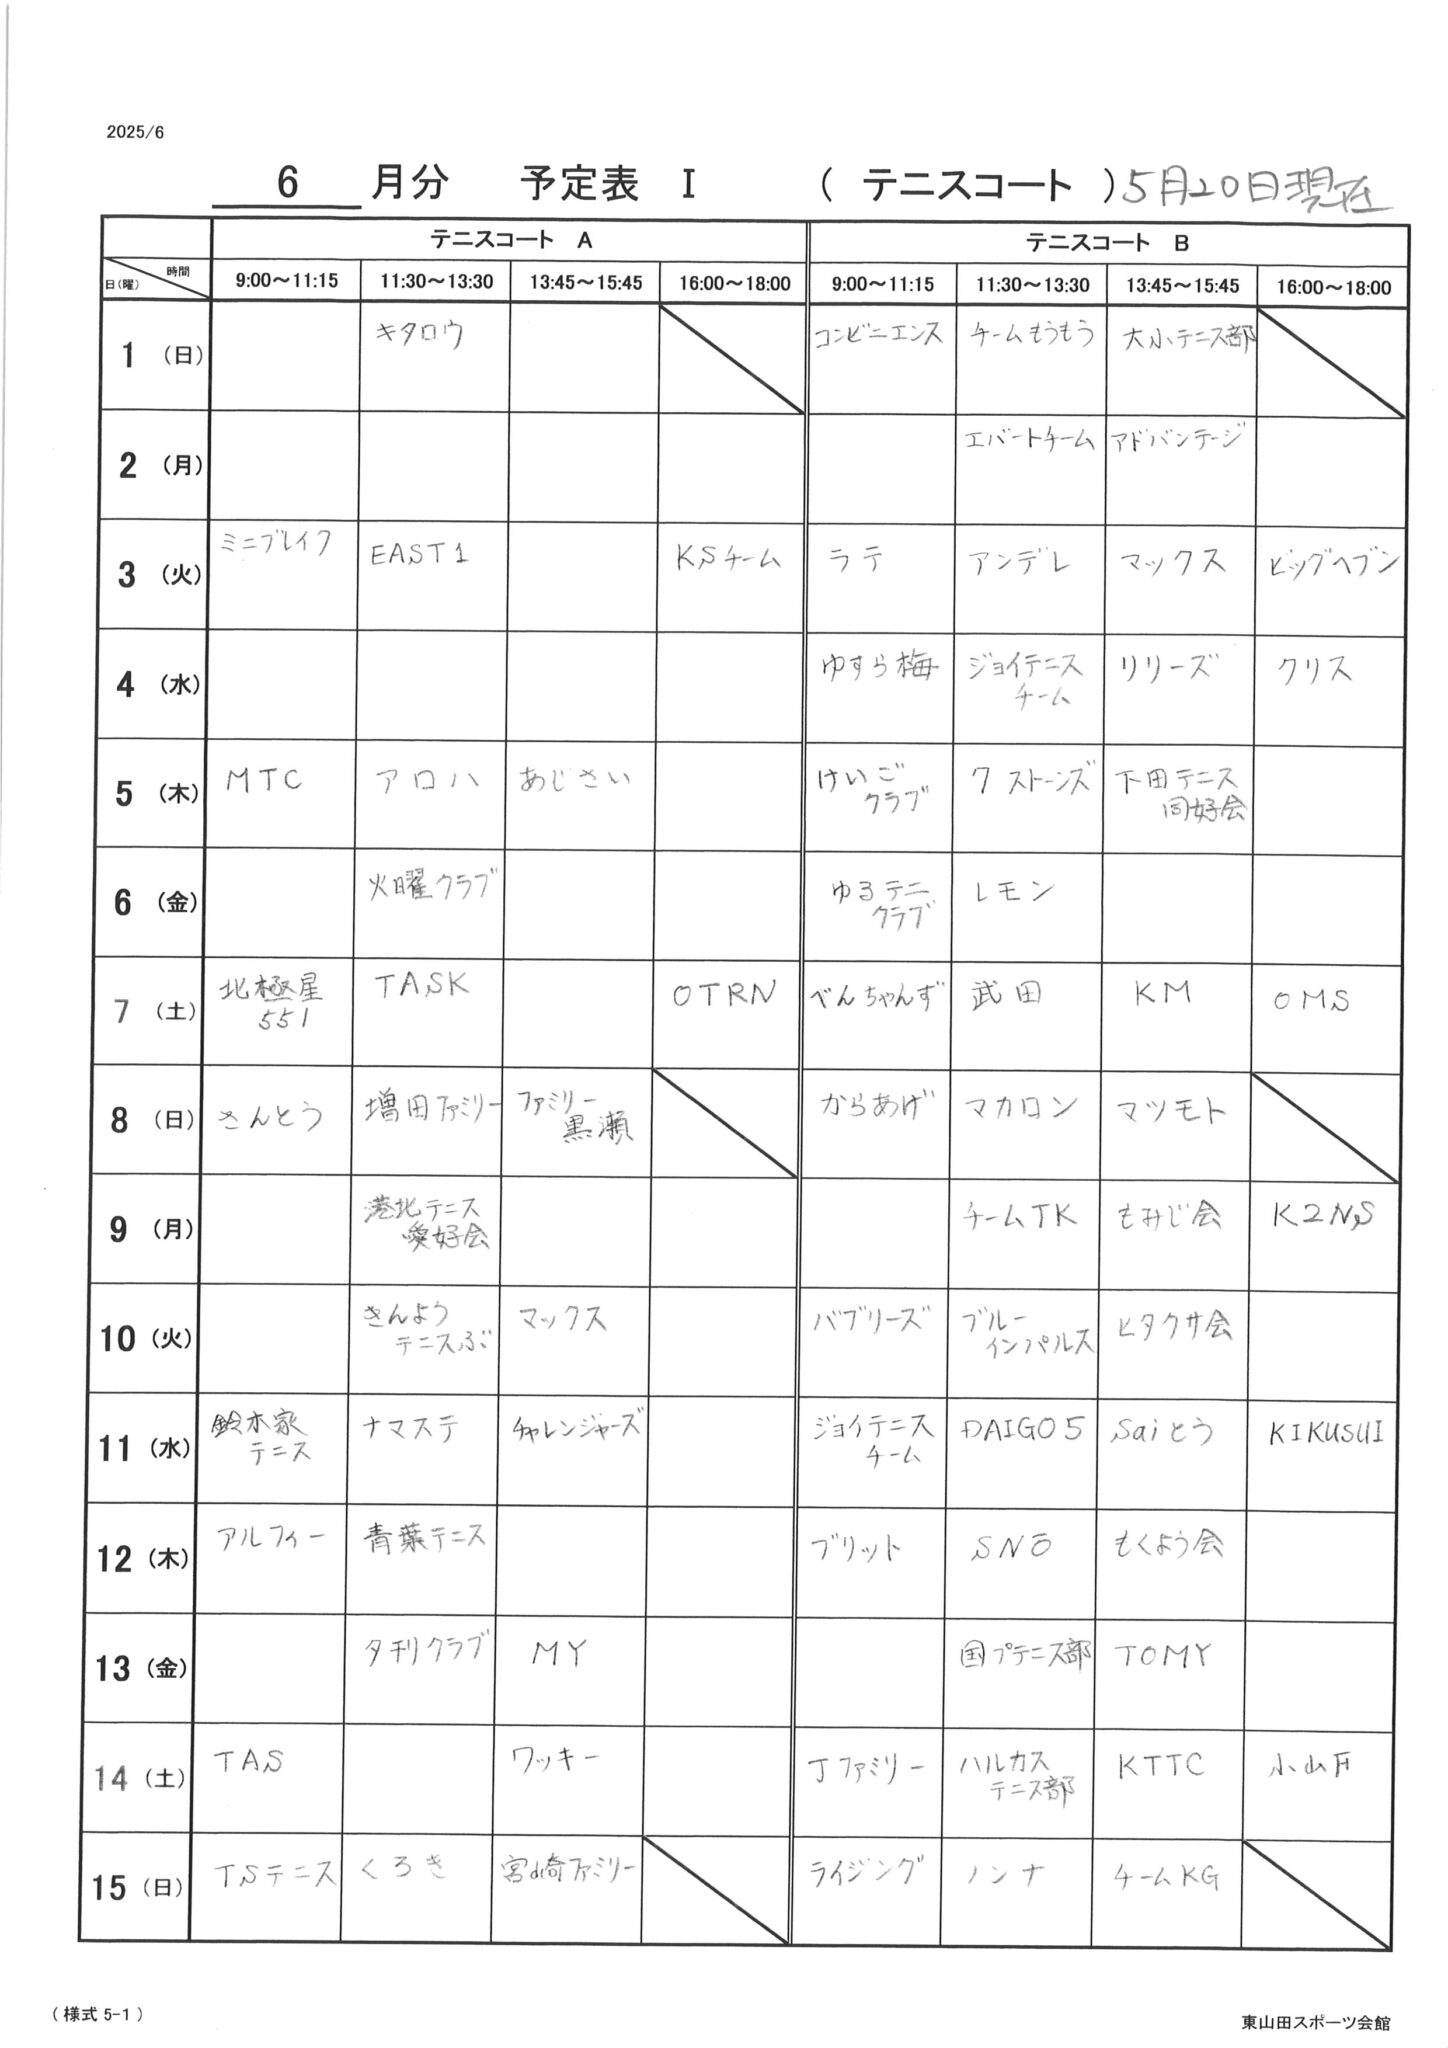 2025/6
6 月分 予定表 Ⅰ ( テニスコート ) 5月20日現在
テニスコート A テニスコート B
時間
日(曜)
9:00～11:15 11:30～13:30 13:45～15:45 16:00～18:00 9:00～11:15 11:30～13:30 13:45～15:45 16:00～18:00
1 (日) キタロウ コンビニエンス チームもうもう 大小テニス部
2 (月) エバートチーム アドバンテージ
3 (火) ミニブレイク EAST1 KSチーム ラテ アンデレ マックス ビッグヘブン
4 (水) ゆすら梅 ジョイテニス リリーズ クリス
チーム
5 (木) MTC アロハ あじさい けいご 7 ストーンズ 下田テニス
クラブ 同好会
6 (金) 火曜クラブ ゆるテニ レモン
クラブ
7 (土) 北極星 TASK OTRN べんちゃんず 武田 KM OMS
551
8 (日) さんとう 増田ファミリー ファミリー からあげ マカロン マツモト
黒瀬
9 (月) 港北テニス チームTK もみじ会 K2NS
愛好会
10 (火) きんよう マックス バブリーズ ブルー ヒタクサ会
テニスぶ インパルス
11 (水) 鈴木家 ナマステ チャレンジャーズ ジョイテニス DAIGO5 Saiとう KIKUSUI
テニス チーム
12 (木) アルフィー 青葉テニス ブリット SNO もくよう会
13 (金) クラブ MY 国プテニス部 TOMY
14 (土) TAS ワッキー Jファミリー ハルカス KTTC
テニス部
15 (日) TSテニス くろき 宮崎ファミリー ライジング ノンナ チームKG
( 様式 5-1 )
東山田スポーツ会館